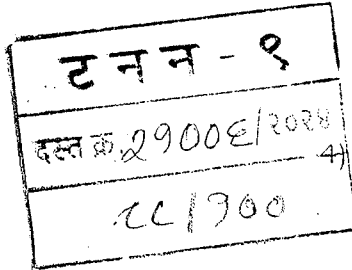 ट न न - ९
दस्त क्र. २१००६/२०२४
4)
८८/१००